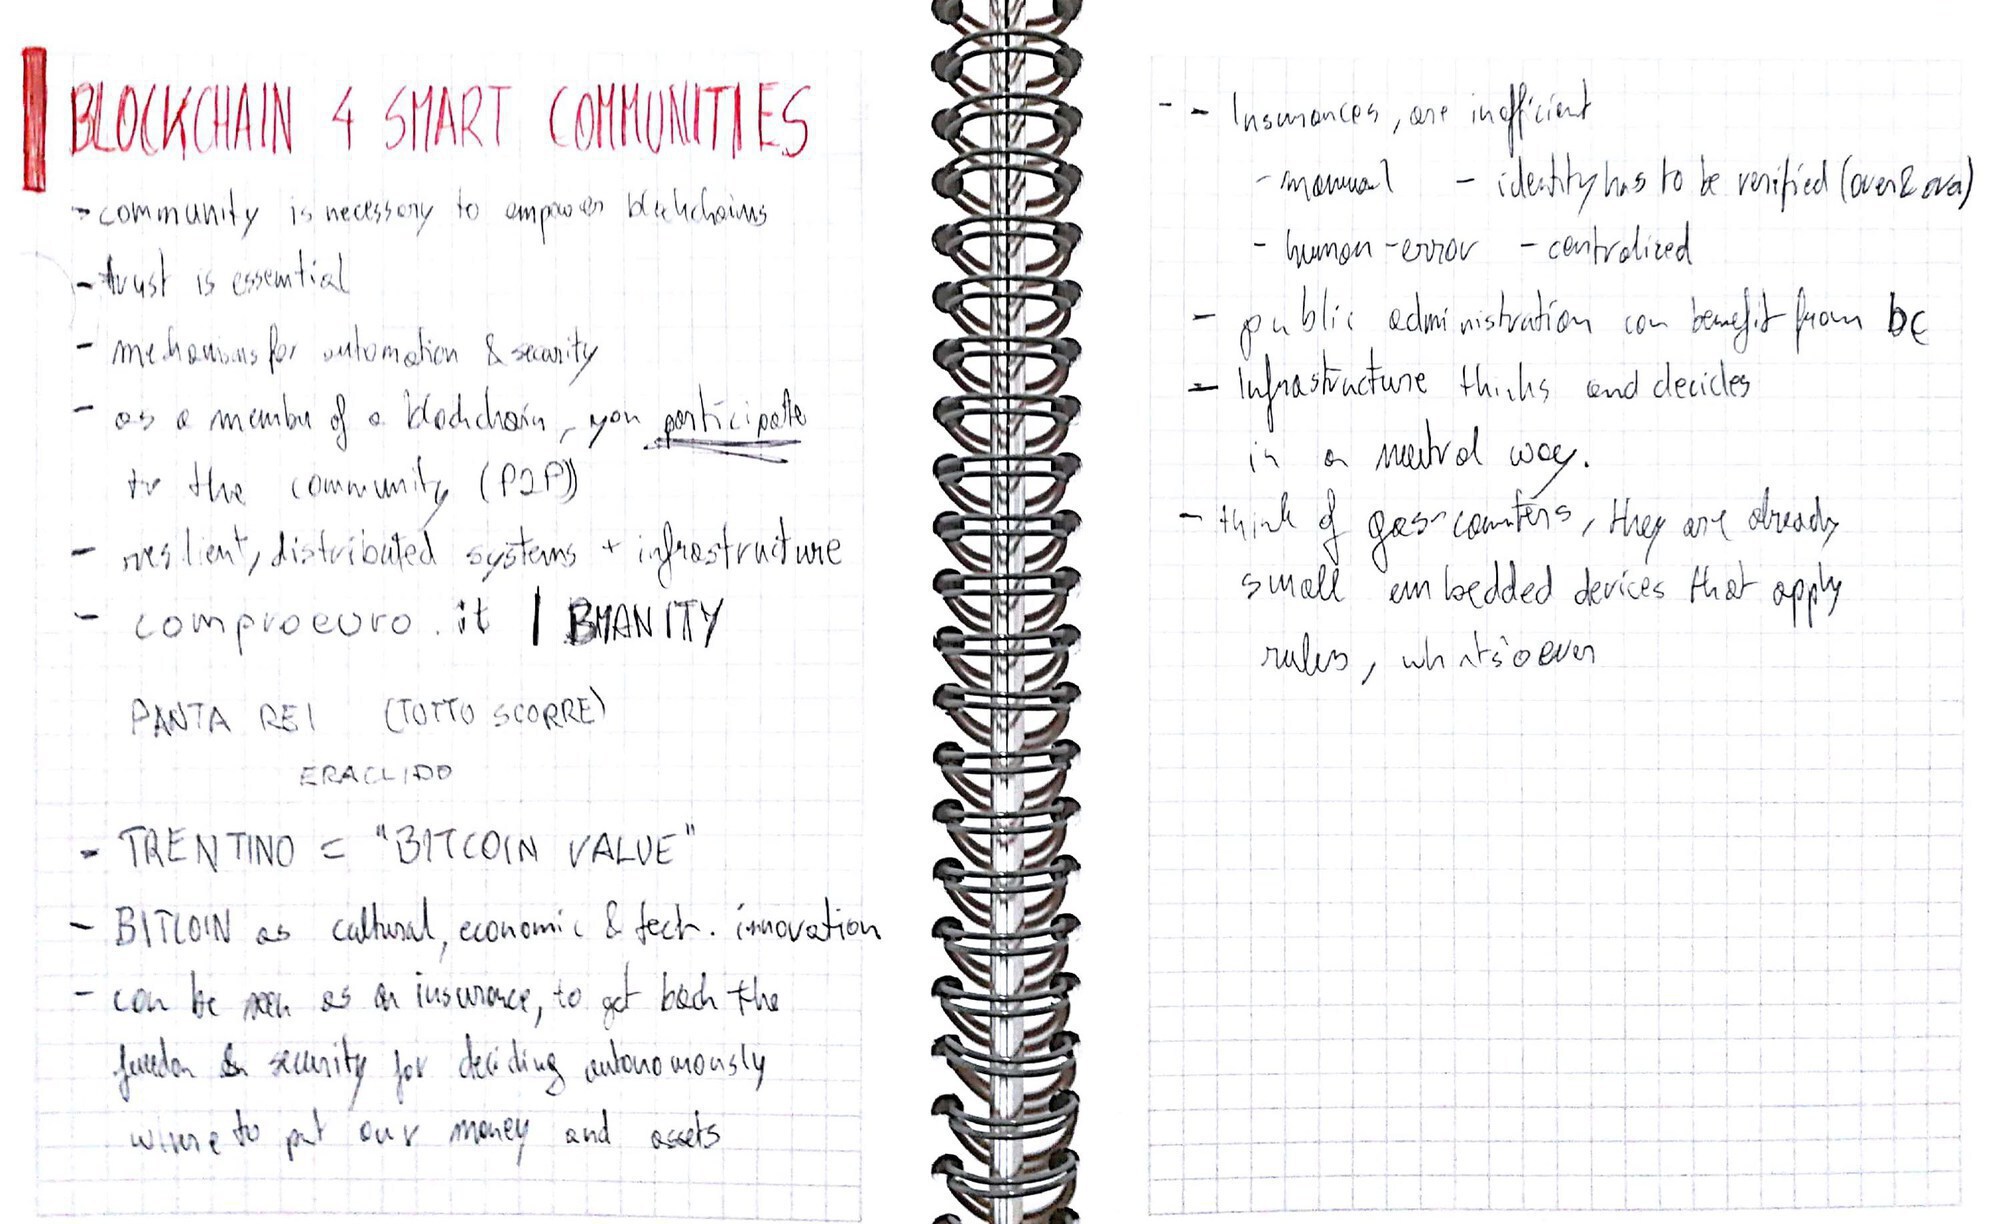 BLOCKCHAIN 4 SMART COMMUNITIES
- community is necessary to empower blockchains
- trust is essential
- mechanisms for automation & security
- as a member of a blockchain, you participate
to the community (P2P)
- resilient, distributed systems + infrastructure
- comproeuro.it | BMANITY
PANTA REI (TOTTO SCORRE)
ERACLIDO
- TRENTINO = "BITCOIN VALUE"
- BITCOIN as cultural, economic & tech. innovation
- can be seen as an insurance, to get back the
freedon & security for deciding autonomously
where to put our money and assets
- - Insurances, are inefficient
- manual - identity has to be verified (over & over)
- human-error - centralized
- public administration can benefit from bc
- Infrastructure thinks and decides
in a neutral way.
- think of gas-counters, they are already
small embedded devices that apply
rules, whatsoever